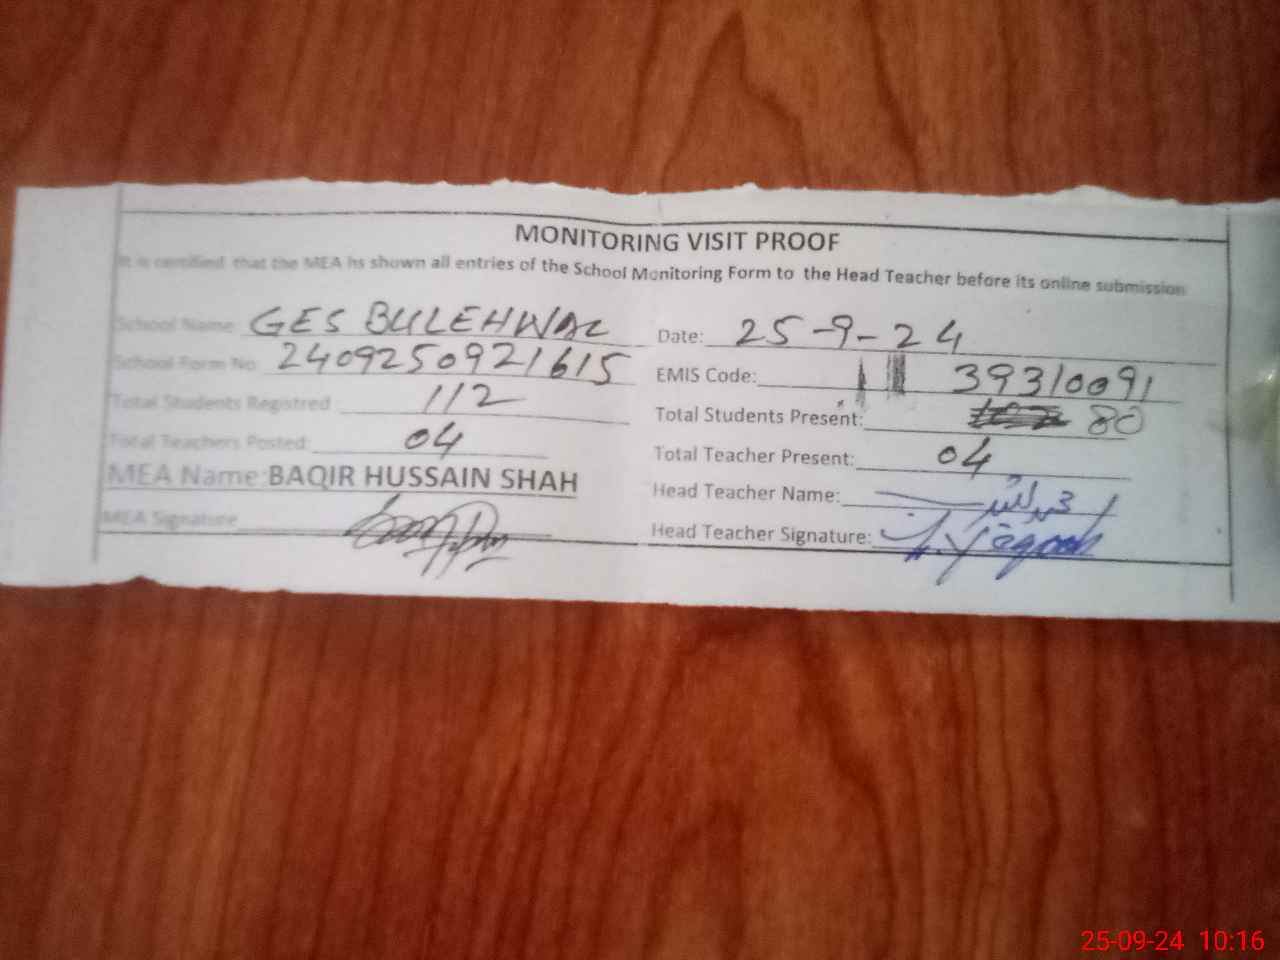 MONITORING VISIT PROOF
It is certified that the MEA hs shown all entries of the School Monitoring Form to the Head Teacher before its online submission
School Name: GES BULEHWAL Date: 25-9-24
School Form No: 2409250921615 EMIS Code: 39310091
Total Students Registred 112 Total Students Present: 80
Total Teachers Posted: 04 Total Teacher Present: 04
MEA Name: BAQIR HUSSAIN SHAH Head Teacher Name:
MEA Signature Head Teacher Signature:
25-09-24 10:16